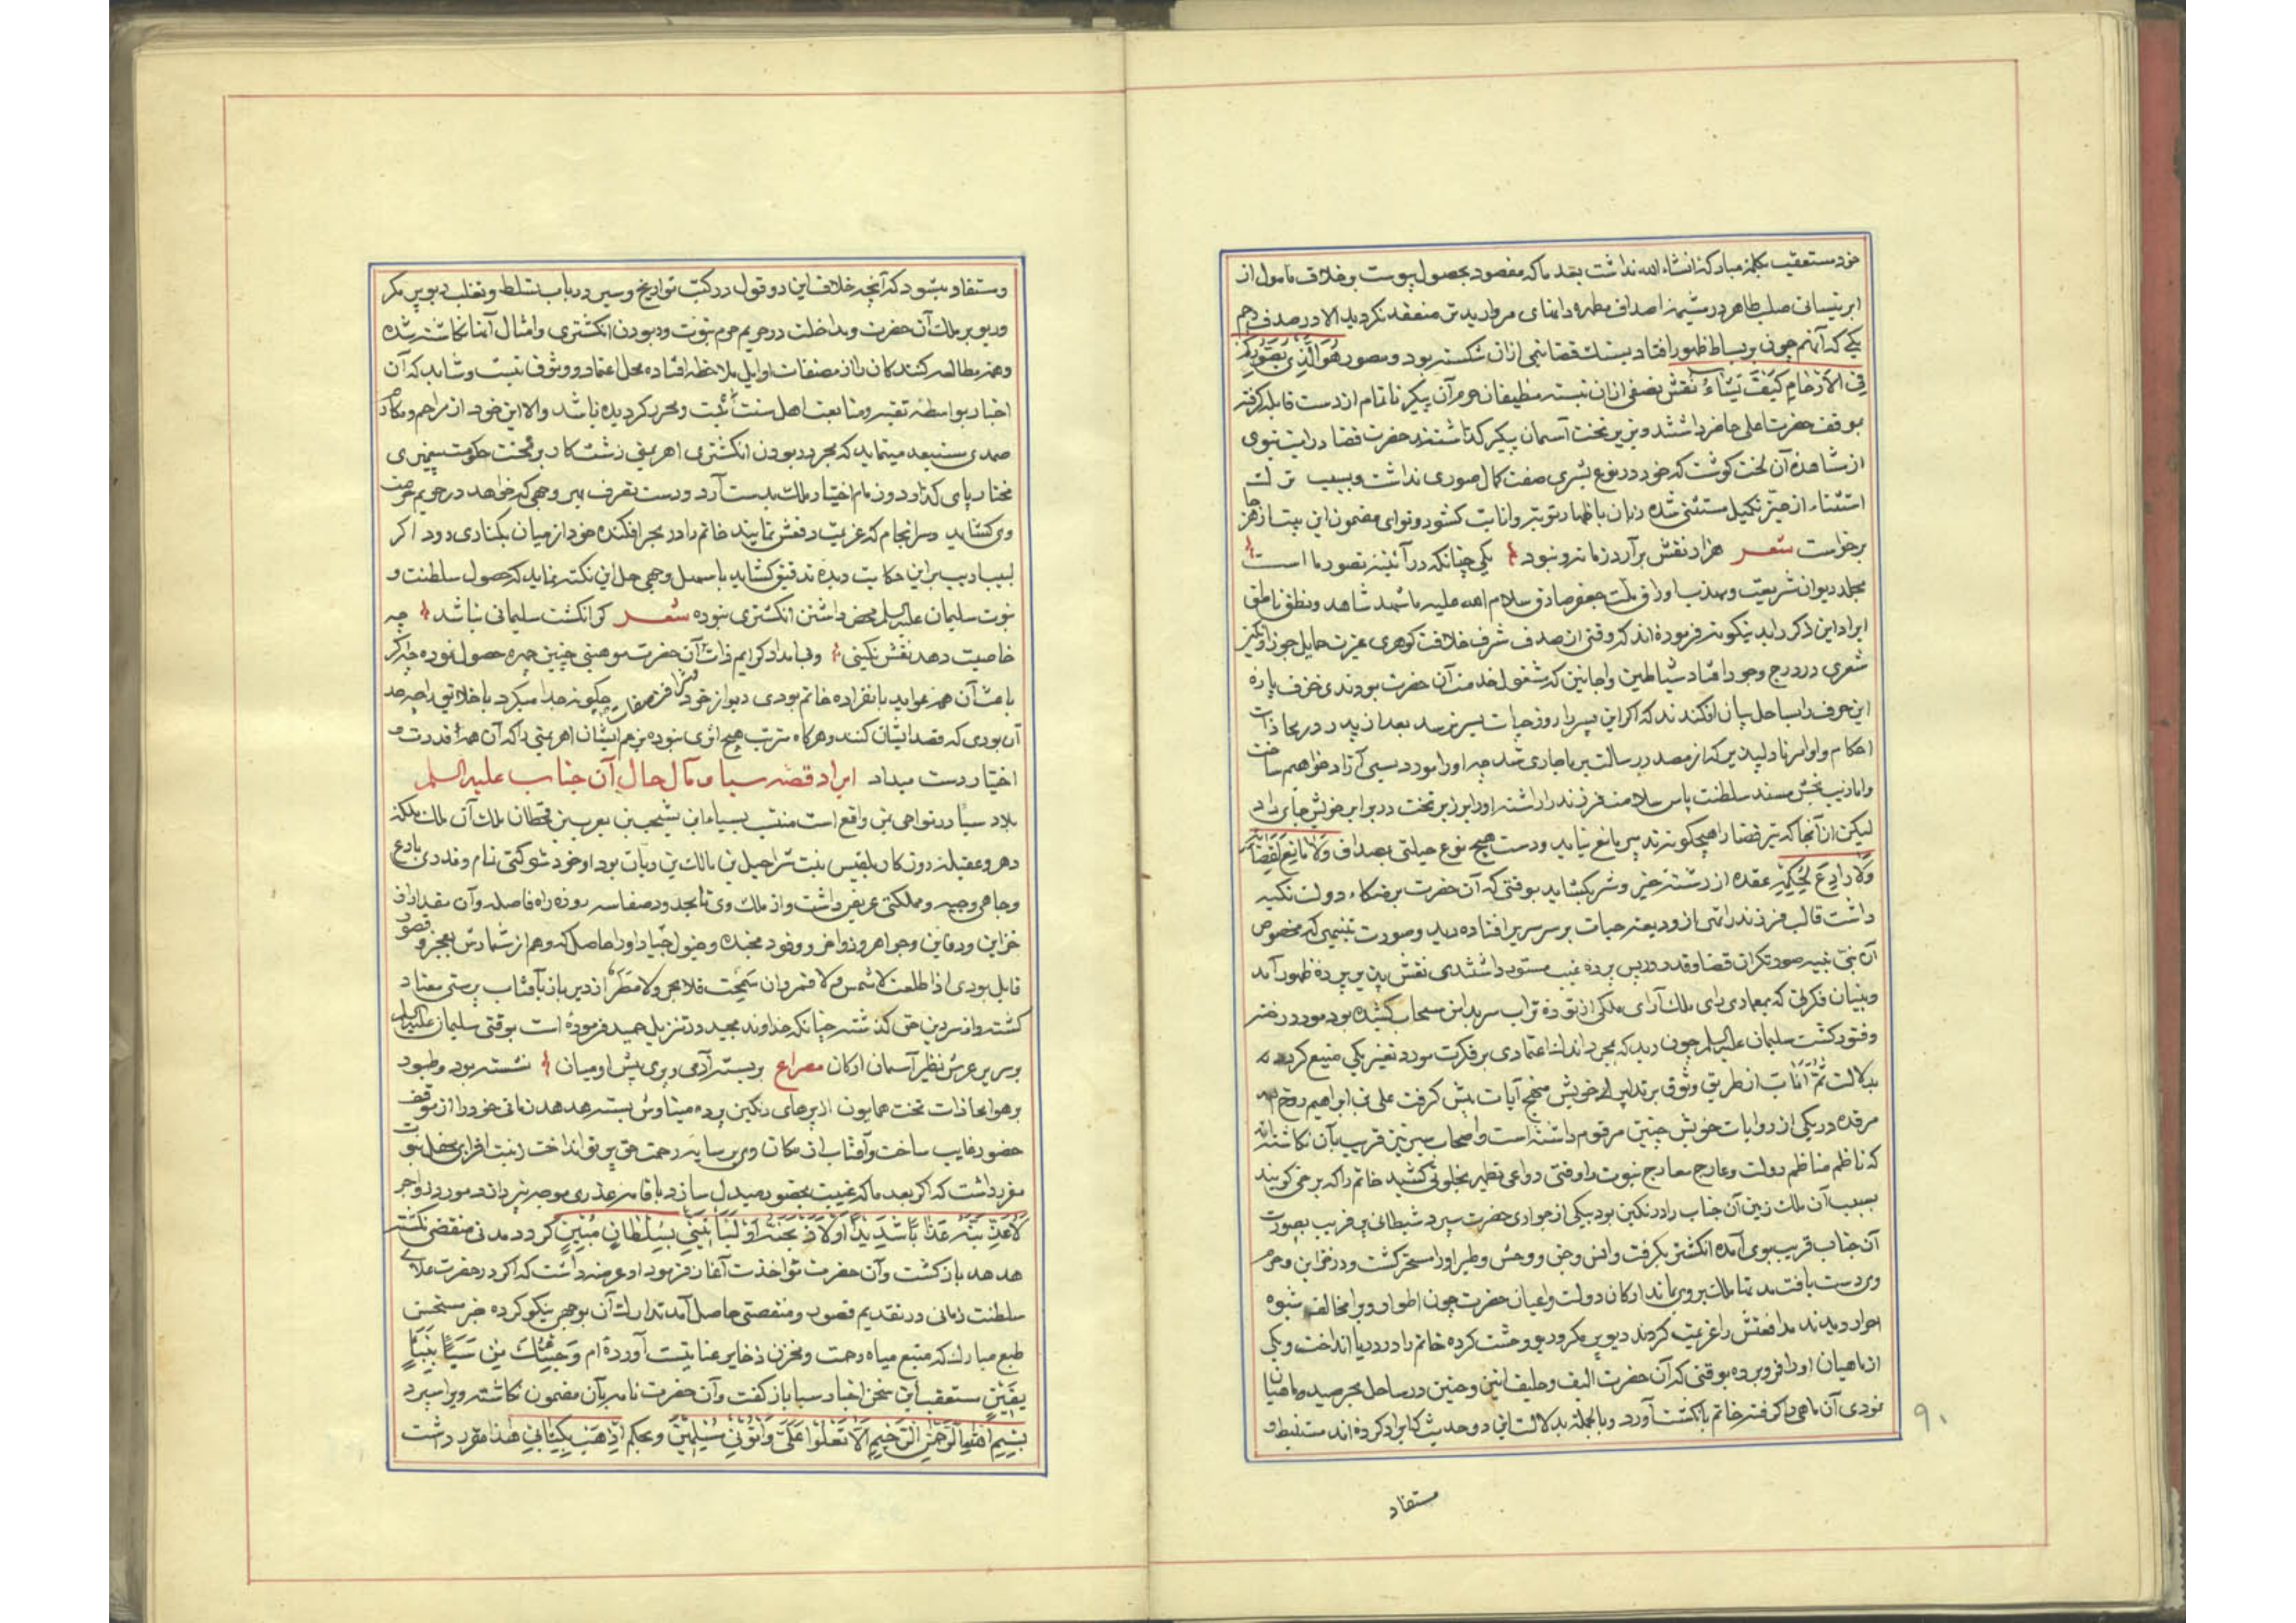 خود مستعقب بکلمهٔ مبارکه انشاء الله نداشت بعد ما که مقصود بحصول پیوست بر خلاف مامول از
ابر نیسانی صلب طاهر در مشیمهٔ اصداف مطهره دانه‌ای مروارید تن منعقد نکردید الا در صدف رحم
یکی که آنهم چون بر بساط ظهور افتاد بسنك قضا نیمی ازان شکسته بود و مصور هو الذی یصورکم
فی الارحام کیف یشاء نقش نصفی ازان نبسته نظیفان حرم آن پیکر ناتمام از دست قابله کرفته
بموقف حضرت اعلی حاضر داشتند و بر تخت آسمان پیکر کذاشتند حضرت قضا درایت نبوی
از مشاهده آن لخت کوشت که خود در نوع بشری صفت کمال صوری نداشت و بسبب ترك
استثناء از حیز تکمیل مستثنی شده زبان باظهار توبه و انابت کشود و نوای مضمون این بیت از هر جا
برخواست شعر هزار نقش برآرد زمانه و نبود یکی چنانکه در آئینه تصور ما است
مجلد دیوان شریعت و مهذب اوراق ملت جعفر صادق سلام الله علیه ما شهد شاهد و نطق ناطق
ایراد این ذکر را بدینکونه فرموده‌اند که وقتی از صدف شرف خلافت کوهری عزیزت حمایل جوزا و کمر
شعری در درج وجود افتاد شیاطین و اجانین که مشغول خدمت آن حضرت بودندی خزف پاره
این حرف را بساحل بیان افکندند که اکر این پسر را روز حیات بسر نرسد بعد از پدر در محاذات
احکام و اوامر نادلپذیر که از مصدر رسالت بر ما جاری شد چه او را مورد سبی آزاد خواهیم ساخت
و اما زیب بخش مسند سلطنت پاس سلامت فرزند را داشته او را بر زبر تخت در برابر خویش جای داد
لیکن از آنجا که تیر قضا را هیچکونه تدبیر مانع نیاید و دست هیچ نوع حیلتی بمصداق ولا مانع لقضائه
ولا رادع لحکمه عقده از رشته خیر و شر نکشاید بوقتی که آن حضرت بر متکاء دولت تکیه
داشت قالب فرزند را تهی از ودیعه حیات بر سر سریر افتاده دید و صورت تنبیهی که مخصوص
آن نبی نبیه صورتکران قضا و قدر در پس پرده غیب مستور داشتندی نقش پذیر پرده ظهور آمد
و بنیان فکرتی که بمعماری رای ملك آرای ملکی از توده تراب سر بدامن سحاب کشیده بود مورد رخنه
و فتور کشت سلیمان علیه السلم چون دید که بمجرد اندك اعتمادی بر فکرت مورد تغییر یکی منیع کردید
بدلالت ثم اناب از طریق وثوق بر تدابیر خویش منهج آیات پیش کرفت علی بن ابراهیم روح الله
مرقده در یکی از روایات خویش چنین مرقوم داشته است و اصحاب سیر نیز قریب بآن نکاشته‌اند
که ناظم مناظم دولت و عارج معارج نبوت را وقتی دواعی تطهیر بخلوتی کشید خاتم را که برخی کویند
بسبب آن ملك زمین آن جناب را در نکین بود بیکی از جواری حضرت سپرد شیطانی پر فریب بصورت
آن جناب قریب بوی آمده انکشتر بکرفت و انس و جن و وحش و طیر او را مسخر کشت و در خزاین و حرم
وی دست یافت مدتها ملك بر وی بماند ارکان دولت و اعیان حضرت چون اطوار ویرا مخالف شیوه
احرار دیدند مدافعتش را عزیمت کردند دیو پر مکر و ریو وحشت کرده خاتم را در دریا انداخت و یکی
از ماهیان او را فرو برده بوقتی که آن حضرت الیف و حلیف انین و حنین در ساحل بحر صید ماهیان
نمودی آن ماهی را کرفته خاتم بانکشت آورد و بالجمله بدلالت این دو حدیث که ایراد کرده‌اند مستنبط و
مستفاد
۹۰
و مستفاد میشود که آنچه خلاف این دو قول در کتب تواریخ و سیر در باب تسلط و تغلب دیو پر مکر
و ریو بر ملك آن حضرت و مداخلت در حریم حرم نبوت و ربودن انکشتری و امثال آنها نکاشته شده
و همه مطالعه کنندکان را از مصنفات اوایل ملاحظه افتاده محل اعتماد و وثوق نیست و شاید که آن
اخبار بواسطه تقیه و متابعت اهل سنت ثبت و محرر کردیده باشد والا این خود از مراحم و مکارم
صمدی مستبعد مینماید که بمجرد ربودن انکشتری اهریمنی زشت کار بر تخت حکومت پیغمبری
مختار پای کذارد و زمام اختیار ملك بدست آرد و دست تصرف بهر وجهی که خواهد در حریم حرمت
وی کشاید و سرانجام که عزیمت دفعش نمایند خاتم را در بحر افکنده خود از میان بکناری رود اکر
لبیب ادیب بر این حکایت دیده تدقیق کشاید باسهل وجهی حل این نکته نماید که حصول سلطنت و
نبوت سلیمان علیه السلم محض داشتن انکشتری نبوده شعر کر انکشت سلیمانی نباشد چه
خاصیت دهد نقش نکینی و فیاض ادکرایم ذات آن حضرت موهبتی چنین چهره حصول نموده چه اکر
باعث آن همه عواید بانفراده خاتم بودی دیو از خود چکونه جدا میکرد یا خلایق را چه حد
آن بودی که قصد ایشان کنند و هرکاه مترتب هیچ اثری نبوده بزعم ایشان اهریمنی را که آن همه قدرت و
اختیار دست میداد ایراد قصه سبا و مآل حال آن جناب علیه السلم
بلاد سبا در نواحی یمن واقع است منتسب بسباء ابن یشجب بن یعرب بن قحطان ملك آن ملك ملکه
دهر و عقیله دوران بلقیس بنت شراحیل بن مالك بن ریان بود او خود شوکتی تمام و قدری بارع
و جاهی وجیه و مملکتی عریض داشت و از ملك وی تا بحدود صنعا سه روزه راه فاصله و آن مقدار از
خزاین و دفاین و جواهر زواخر و وفود مجنده و خیول جیاد او را حاصل که وهم از شمارش بعجز و قصور
قایل بودی اذا طلعت لا شمس ولا قمر وان سمحت فلا بحر ولا مطر از دیرباز بآفتاب پرستی معتاد
کشته و از سر دین حق کذشته چنانکه خداوند مجید در تنزیل حمید فرموده است بوقتی سلیمان علیه السلم
بر سریر عرش نظیر آسمان ارکان مصراع بر بسته آدمی و پری پیش او میان نشسته بود و طیور
بر هوا محاذات تخت همایون از پرهای رنکین پرده میناوش بسته هدهد زمانی خود را از موقف
حضور غایب ساخت و آفتاب از مکان وی بر سایه رحمت حق پرتو انداخت زینت افزای محفل نبوت
مقرر داشت که اکر بعد ما که غیبت بحضور مبدل سازد باقامه عذری موجه نپردازد مورد زواجر
لاعذبنه عذابا شدیدا او لاذبحنه او لیأتینی بسلطان مبین کردد مدتی منقضی نکشته
هدهد بازکشت و آن حضرت مواخذت آغاز فرمود او عرضه داشت که اکر در حضرت علای
سلطنت زمانی در تقدیم قصور و منقصتی حاصل آمد تدارك آن بوجهی نیکو کرده خبر مستحسن
طبع مبارك که منبع میاه رحمت و مخزن ذخایر عنایتست آورده‌ام وجئتك من سبأ بنبأ
یقین مستعقب این سخن اخبار سبا باز کفت و آن حضرت نامه بر آن مضمون نکاشته ویرا سپرد
بسم الله الرحمن الرحیم الا تعلوا علی وأتونی مسلمین و بحکم اذهب بکتابی هذا مقرر داشت